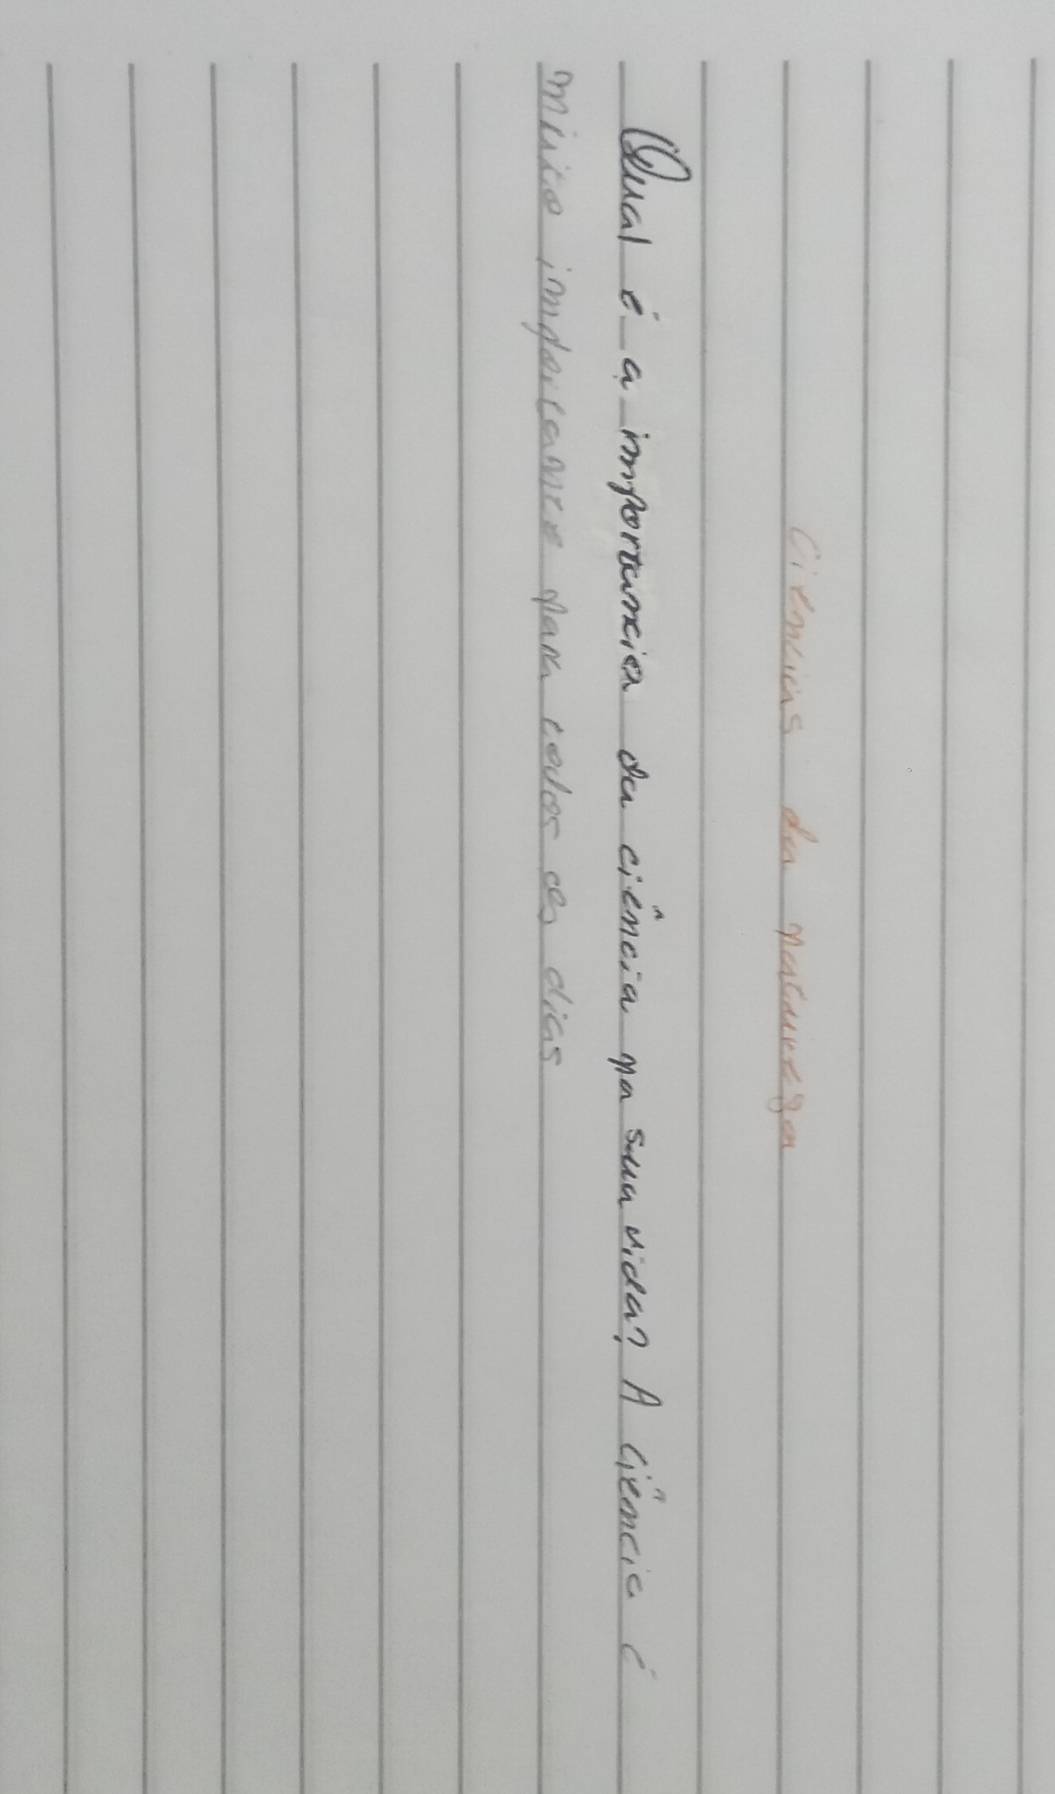 Ciencias da natureza
Qual é a importancia da ciência na sua vida? A Ciência é
muito importante para todos os dias